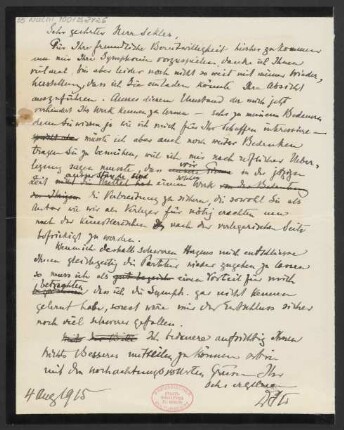 Sehr geehrter Herr Sekles,
Für Ihre freundliche Bereitwilligkeit hierher zu kommen
um mir Ihre Symphonie vorzuspielen danke ich Ihnen
vielmals, bin aber leider noch nicht so weit mit meiner Wieder-
herstellung, dass ich Sie einladen könnte Ihre Absicht
auszuführen. Ausser diesem Umstand der mich jetzt
verhindert Ihr Werk kennen zu lernen — sehr zu meinem Bedauern
denn Sie wissen ja wie ich mich für Ihr Schaffen interessiere —
müsste ich aber auch noch weiter Bedenken
tragen Sie zu bemühen, weil ich mir nach reiflicher Ueber-
legung sagen musste, dass wir in der jetzigen
Zeit ausserstande sind einem Werk
die Verbreitung zu sichern, die sowohl Sie als
Autor wie wir als Verleger für nötig erachten um
nach der künstlerischen nach der verlegerischen Seite
befriedigt zu werden.
Wenn ich deshalb schweren Herzens mich entschliesse
Ihnen gleichzeitig die Partitur wieder zugehen zu lassen
so muss ich als einen Vorteil für mich
betrachten dass ich die Symph. ga nicht kennen
gelernt habe, sonst wäre mir der Entschluss sicher
noch viel schwerer gefallen.
Ich bedauere aufrichtig Ihnen
nichts Besseres mitteilen zu können und bin
mit den hochachtungsvollsten Grüssen Ihr
sehr ergebener
4 Aug 1915